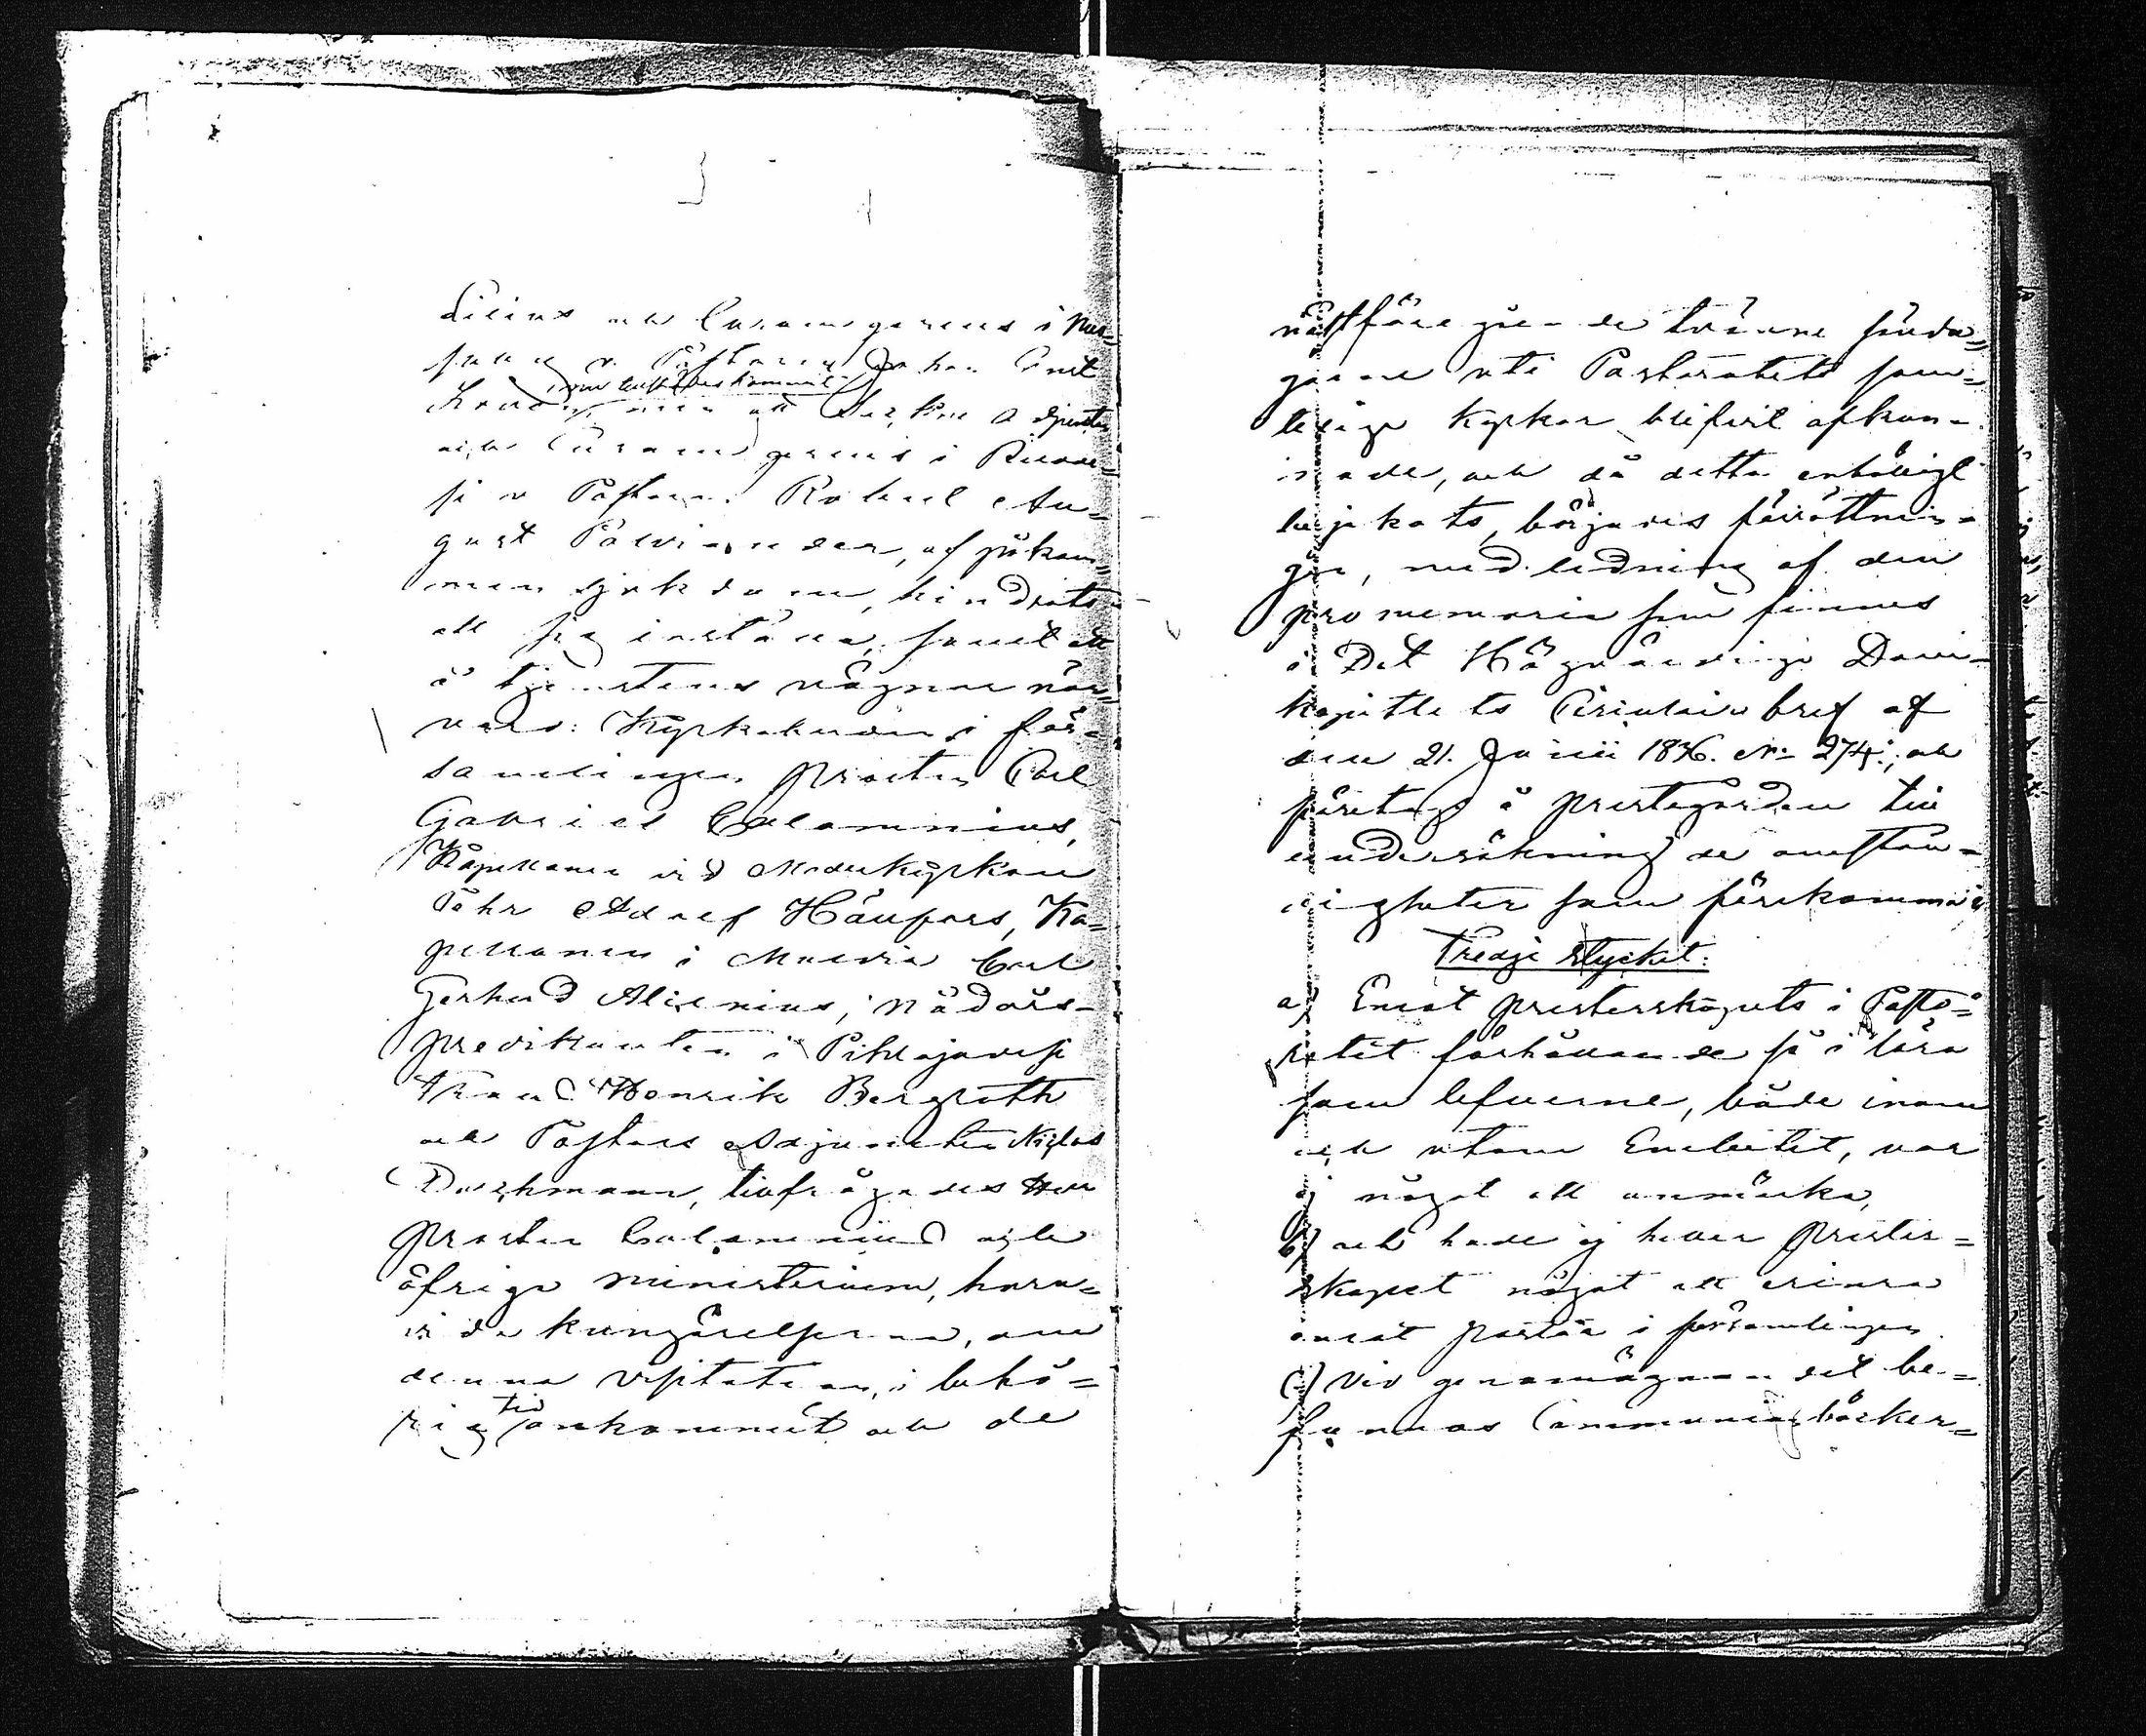 Lilius och Curam gerens i Nur-
 v. Pastoren Johan Emil
som äfven kommit
 men att 
och Curam gerens i 
si v. Pastorn Robert Au-
gust Palviander, af påkom-
men sjukdom, hindrats
att sig inställa, samt att
å tjenstens vägnar när-
varo: Kyrkoherden i för-
samlingen Prosten Carl
Gabriel Calamnius,
Kapellanen vid Moderkyrkan
Joh: Adolf Häufors, Ka-
pellanen i Muldia Carl
Gerhard Alcenius, Nådårs-
predikanten i Pihlajavesi
Frans Henrik Bergroth
och Pastors Adjuncten Niclas
Durchman, tillfrågades Herr
Prosten Calamnius och
öfriga ministerium, huru-
vida kungörelserna, om
denna visitation, i behö-
rig tid ankommit och de
nästföregående tvänne sönda-
garne uti Pastoratets sam-
teliga kyrkor blifvit afkun-
nade, och då detta enhälligt
bejakats, börjades förrättnin-
gen, med ledning af den
promemoria som finnes
i Det Högvärdige Dom-
kapitlets Cirkulairbref af
den 21. Junii 1836. No 274; och
företogs å prestgården till
undersökning de omstän-
digheter som förekomma i
Tredje stycket:
a) Emot presterskapets i Pasto-
ratet förhållande så i lära
som lefverne, både inom
och utom Embetet, var
ej något att anmärka,
b) och hade ej heller prester-
skapet något att erinra
emot  i församlingen.
c) Vid genomögnandet be-
funnos Communionböcker-